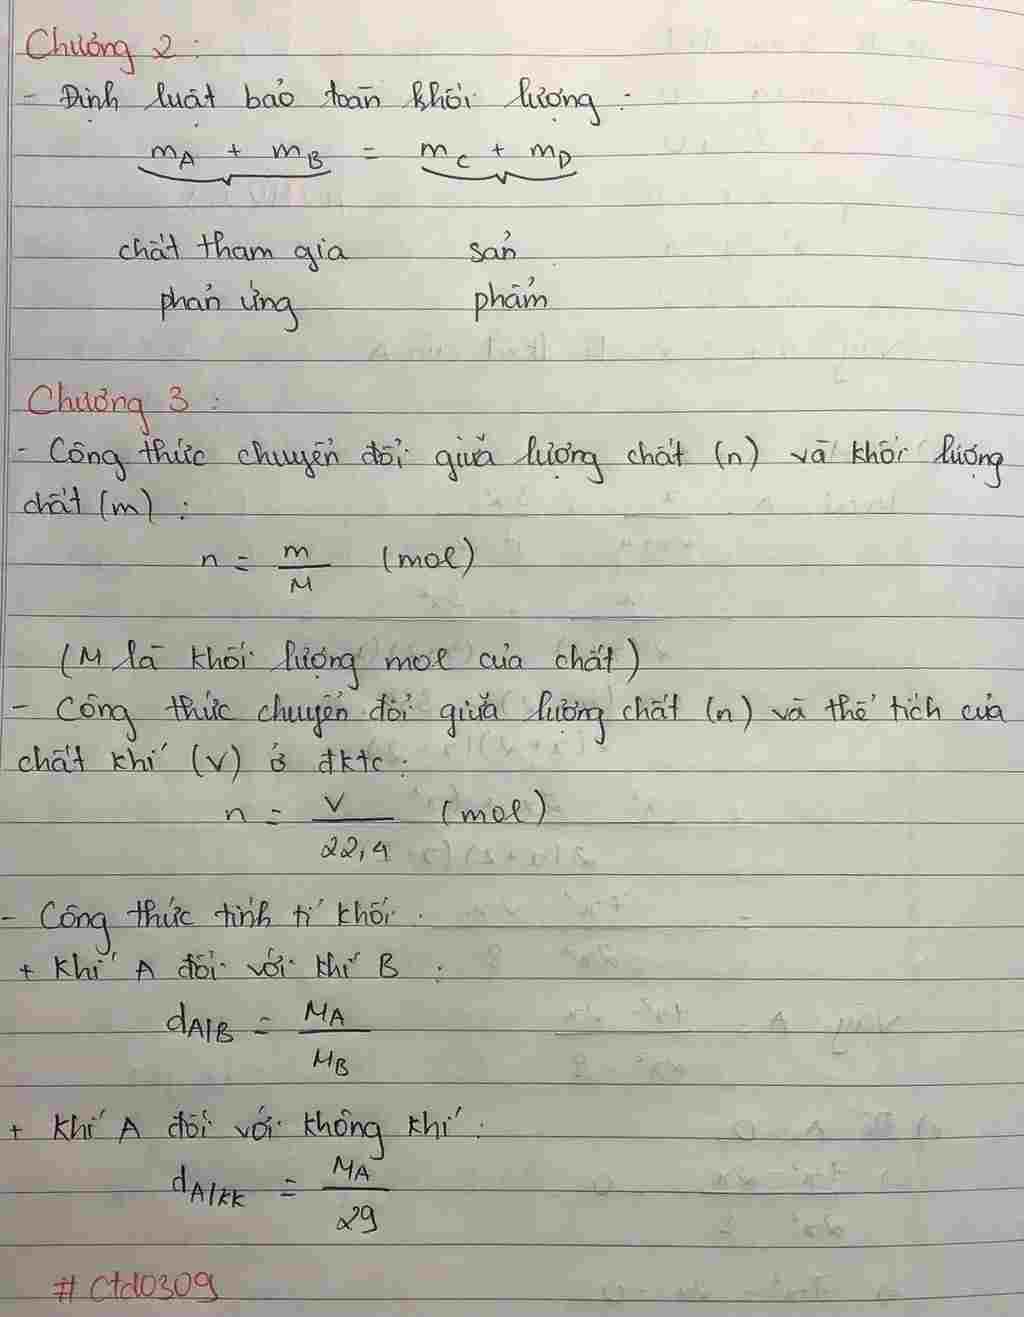 Chương 2 :
- Định luật bảo toàn khối lượng :
mA + mB = mC + mD
chất tham gia sản
phản ứng phẩm
Chương 3 :
- Công thức chuyển đổi giữa lượng chất (n) và khối lượng
chất (m) :
n = m/M (mol)
(M là khối lượng mol của chất)
- Công thức chuyển đổi giữa lượng chất (n) và thể tích của
chất khí (V) ở đktc :
n = V/22,4 (mol)
- Công thức tính tỉ khối :
+ Khí A đối với khí B :
dA/B = MA/MB
+ Khí A đối với không khí :
dA/kk = MA/29
# Ctd0309